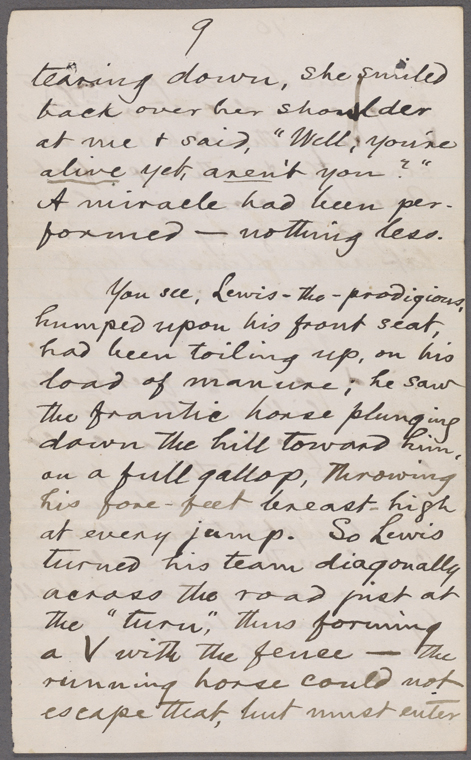 9
tearing down, she smiled
back over her shoulder
at me & said, "Well, you're
alive yet, aren't you?"
A miracle had been per-
formed — nothing less.
You see, Lewis-the-prodigious,
humped upon his front seat,
had been toiling up, on his
load of manure; he saw
the frantic horse plunging
down the hill toward him,
on a full gallop, throwing
his fore-feet breast-high
at every jump. So Lewis
turned his team diagonally
across the road just at
the "turn", thus forming
a V with the fence — the
running horse could not
escape that, but must enter